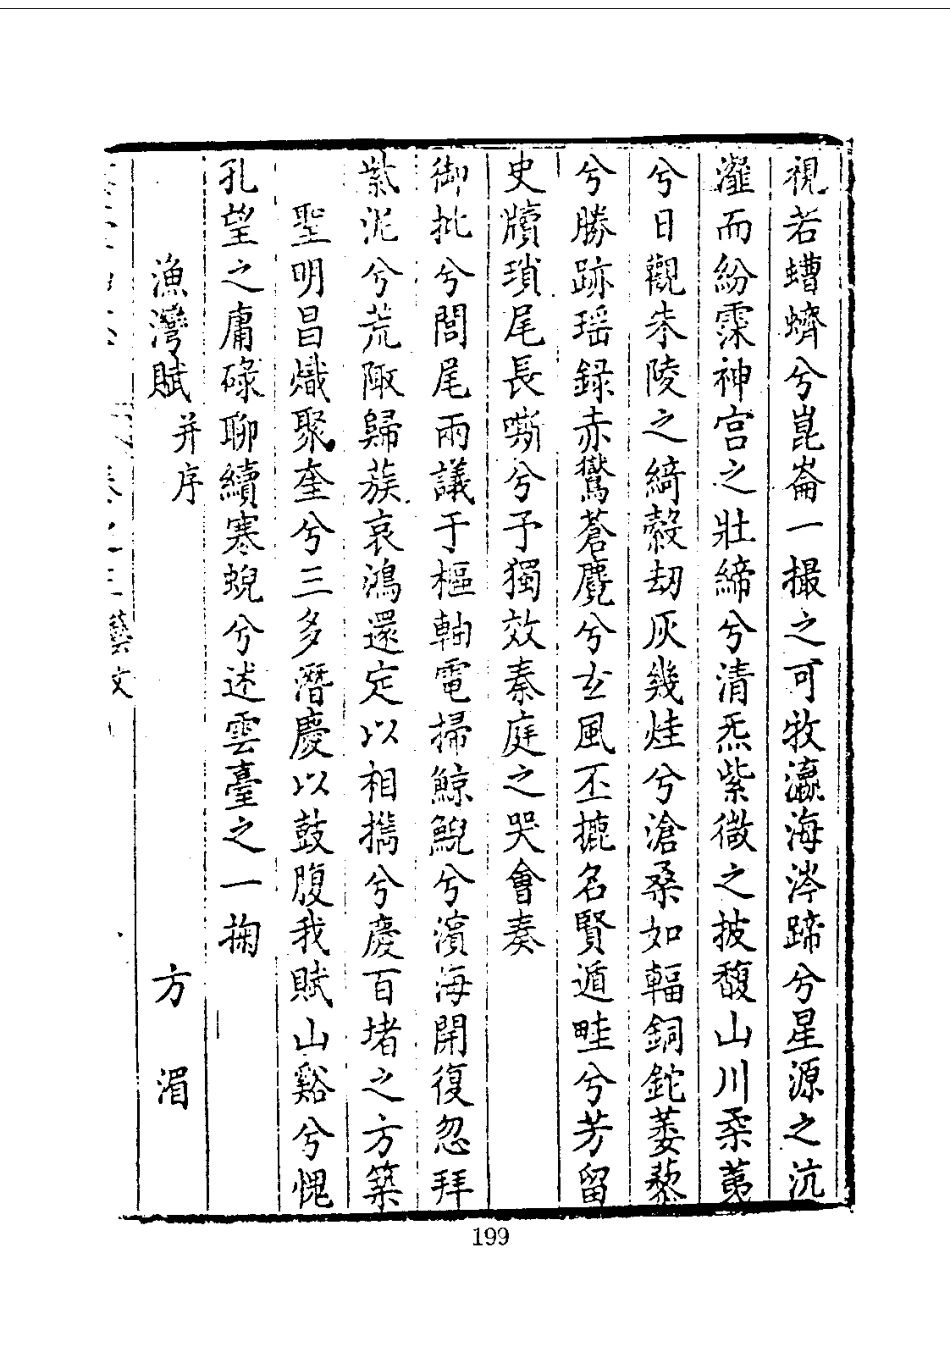 視若螬蠐兮崑崙一撮之可牧瀛海涔蹄兮星源之沆
瀣而紛霂神宫之壯締兮清炁紫微之披馥山川柔荑
兮日觀朱陵之綺縠刼灰幾烓兮滄桑如輻銅鉈萎藜
兮勝跡瑶録赤鸑蒼麑兮玄風丕摭名賢遁畦兮芳留
史牘瑣尾長嘶兮予獨效秦庭之哭會奏
御批兮閭尾兩議于樞軸電掃鯨鯢兮濱海開復忽拜
紫泥兮荒陬歸蔟哀鴻還定以相攜兮慶百堵之方築
聖明昌熾聚奎兮三多潛慶以鼓腹我賦山谿兮愧
孔望之庸碌聊續寒蜺兮述雲臺之一掬
漁灣賦并序 方湄
卷之 藝文
199